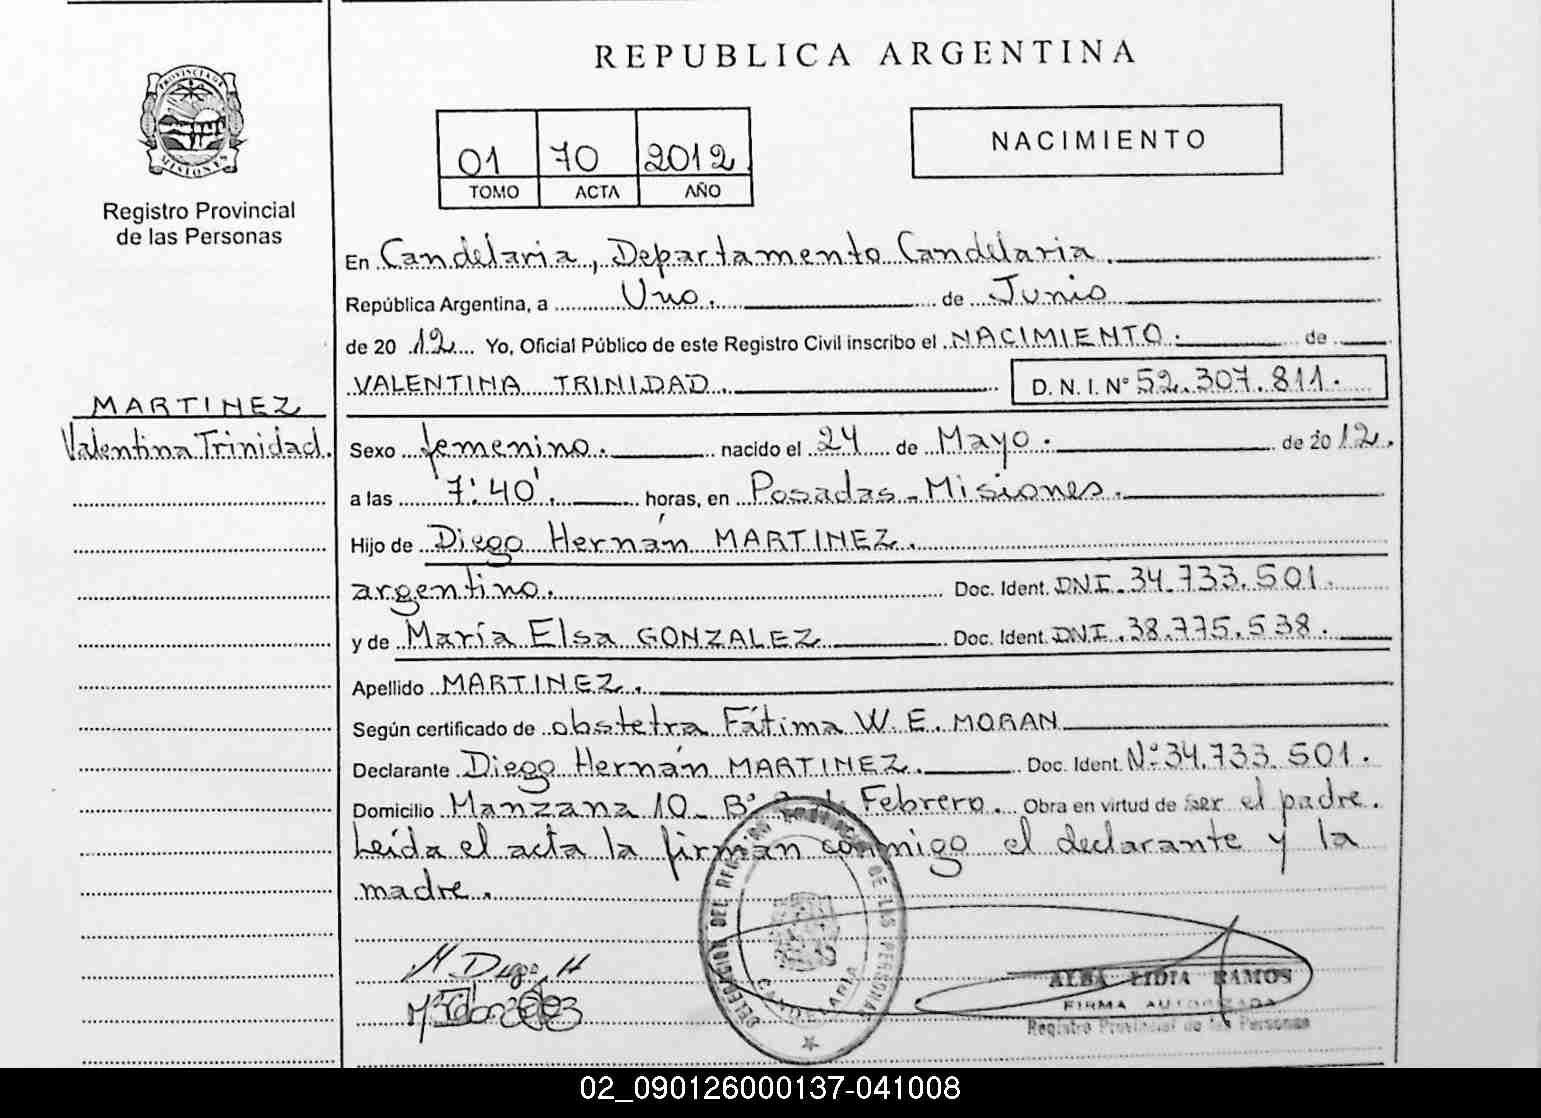 REPUBLICA ARGENTINA
PROVINCIA DE
MISIONES
Registro Provincial
de las Personas
01 70 2012
TOMO ACTA AÑO
NACIMIENTO
En Candelaria, Departamento Candelaria.
República Argentina, a Uno. de Junio
de 20 12 Yo, Oficial Público de este Registro Civil inscribo el NACIMIENTO. de
VALENTINA TRINIDAD. D. N. I. N° 52.307.811.
MARTINEZ
Valentina Trinidad.
Sexo femenino. nacido el 24 de Mayo. de 20 12.
a las 7:40'. horas, en Posadas - Misiones.
Hijo de Diego Hernán MARTINEZ.
argentino. Doc. Ident. DNI. 34.733.501.
y de María Elsa GONZALEZ Doc. Ident. DNI. 38.775.538.
Apellido MARTINEZ.
Según certificado de obstetra Fátima W. E. MORAN
Declarante Diego Hernán MARTINEZ. Doc. Ident. N° 34.733.501.
Domicilio Manzana 10 - B° de Febrero. Obra en virtud de ser el padre.
Leída el acta la firman conmigo el declarante y la
madre.
M Diego H
DELEGACION DEL REGISTRO PROVINCIAL DE LAS PERSONAS
CANDELARIA
ALBA LIDIA RAMOS
FIRMA AUTORIZADA
Registro Provincial de las Personas
02_090126000137-041008